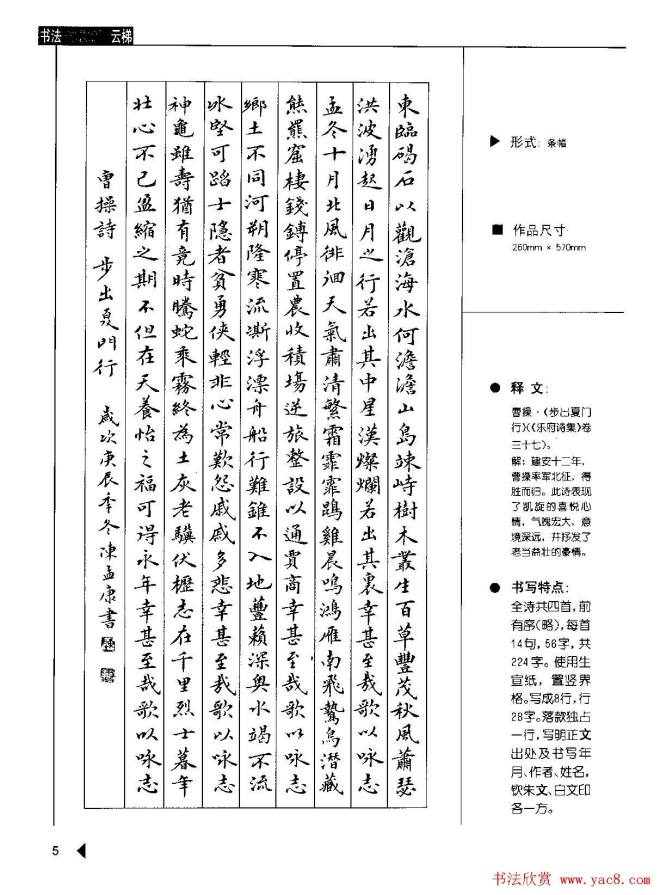 书法 云梯
東臨碣石以觀滄海水何澹澹山島竦峙樹木叢生百草豐茂秋風蕭瑟
洪波湧起日月之行若出其中星漢燦爛若出其裏幸甚至哉歌以咏志
孟冬十月北風徘徊天氣肅清繁霜霏霏鵾雞晨鳴鴻雁南飛鷙鳥潛藏
熊羆窟棲錢鎛停置農收積場逆旅整設以通賈商幸甚至哉歌以咏志
鄉土不同河朔隆寒流澌浮漂舟船行難錐不入地蘴藾深奥水竭不流
冰堅可蹈士隱者貧勇俠輕非心常歎怨戚戚多悲幸甚至哉歌以咏志
神龜雖壽猶有竟時騰蛇乘霧終為土灰老驥伏櫪志在千里烈士暮年
壯心不已盈縮之期不但在天養怡之福可得永年幸甚至哉歌以咏志
曹操詩 步出夏門行 歲次庚辰季冬陳孟康書
▶ 形式：条幅
■ 作品尺寸：
260mm × 570mm
● 释文：
曹操·《步出夏门
行》(《乐府诗集》卷
三十七)。
解：建安十二年，
曹操率军北征，得
胜而归。此诗表现
了凯旋的喜悦心
情，气魄宏大，意
境深远，并抒发了
老当益壮的豪情。
● 书写特点：
全诗共四首，前
有序(略)，每首
14句，56字，共
224字。使用生
宣纸，置竖界
格。写成8行，行
28字。落款独占
一行，写明正文
出处及书写年
月、作者、姓名，
钦朱文、白文印
各一方。
5 ◀
书法欣赏 www.yac8.com